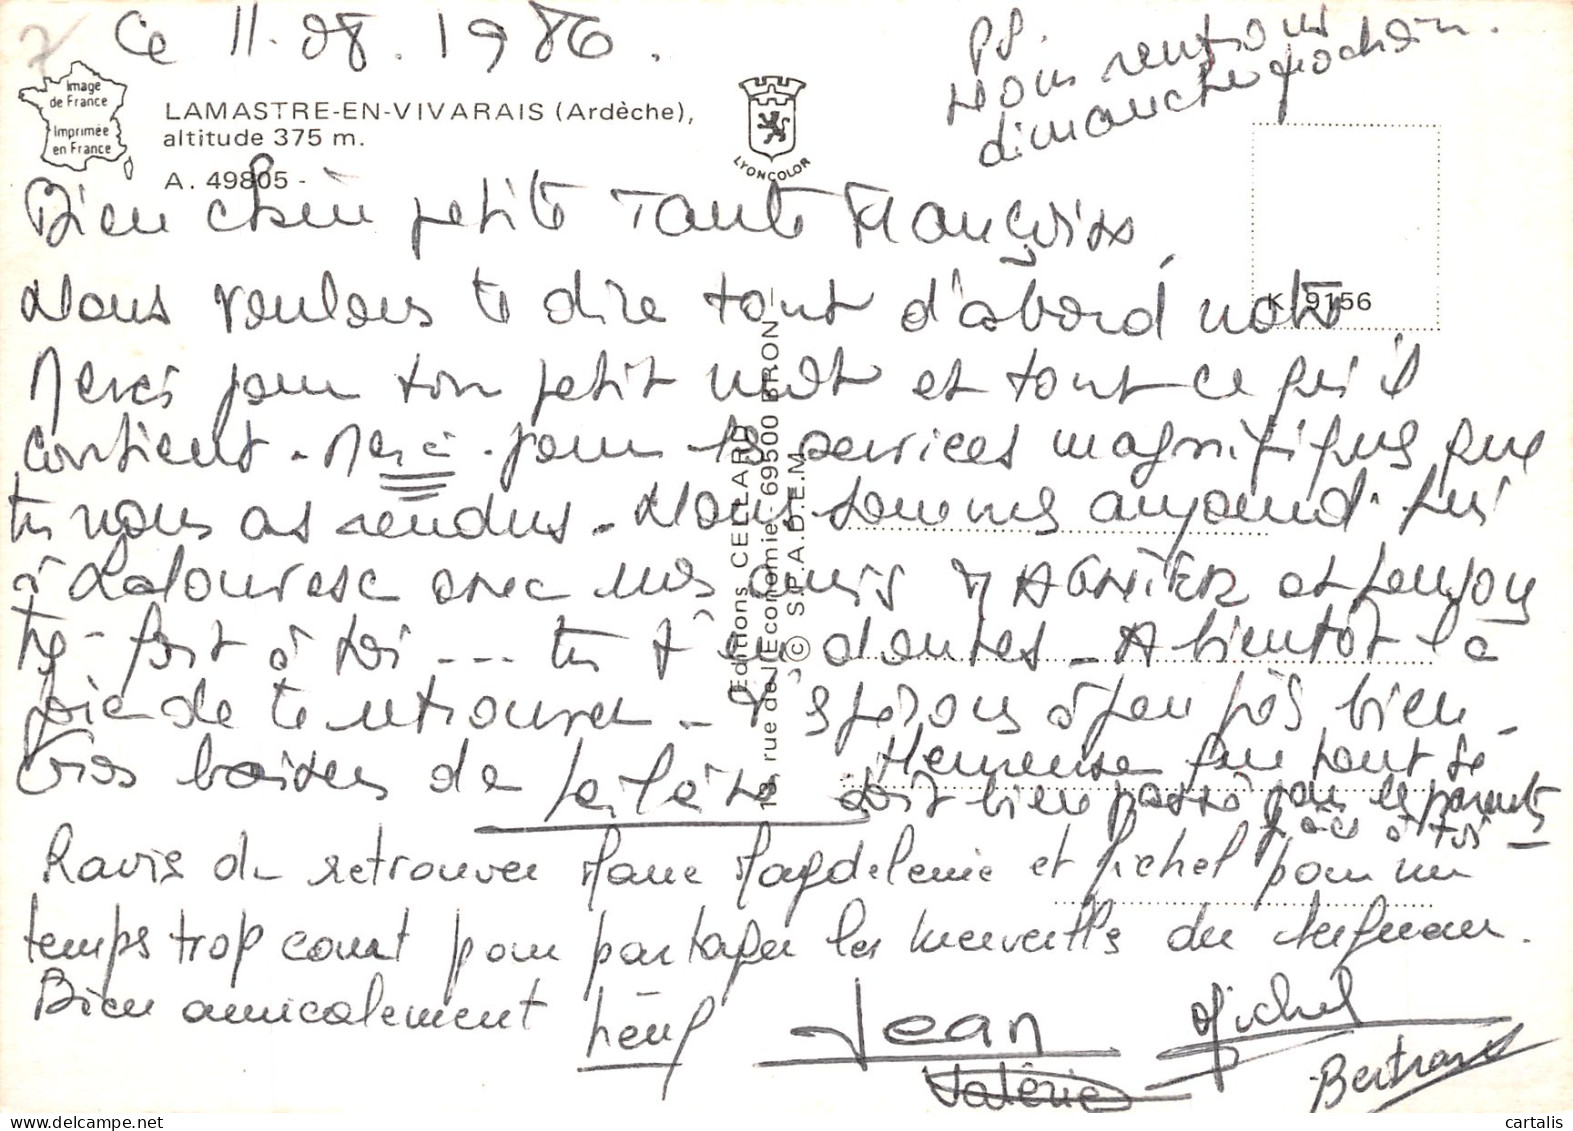 Ce 11.08.1986.
PS.
Nous rentrons
dimanche prochain.
Image
de France
Imprimée
en France
LAMASTRE-EN-VIVARAIS (Ardèche),
altitude 375 m.
A. 49805 -
LYONCOLOR
K 9156
Editions CELLARD
19, rue de l'Economie 69500 BRON -
© S.P.A.D.E.M.
Bien chère petite Tante Françoise,
Nous voulons te dire tout d'abord notre
Merci pour ton petit mot et tout ce qu'il
contient. Merci pour les services magnifiques que
tu nous as rendus. Nous sommes aujourd'hui
à Lalouvesc avec nos amis MAGNIER et pensons
très fort à toi ... tu t'en doutes. A bientôt la
joie de te retrouver. J'espérons à peu près bien.
Gros baisers de
Heureuse que tout se
soit bien passé pour les parents
grâce à toi
Ravis de retrouver Marie Magdeleine et Michel pour un
temps trop court pour partager les merveilles du
Bien amicalement
Jean
Michel
Valérie
Bertrand